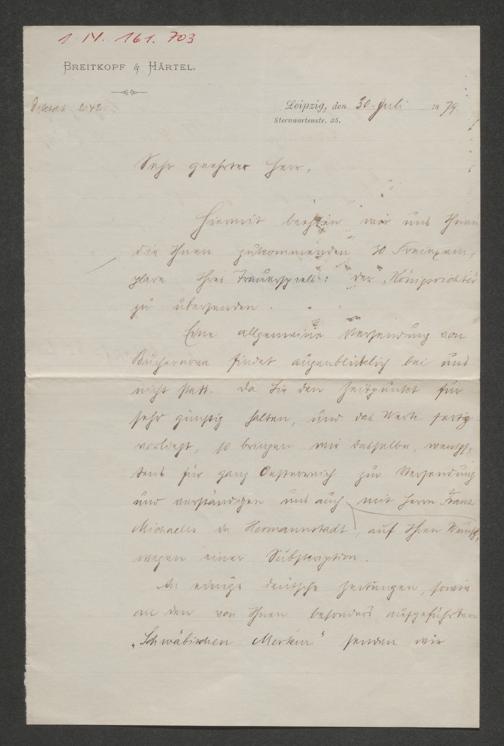 1 N. 161. 703
BREITKOPF & HÄRTEL.
Leipzig, den 30. Juli 1879
Sternwartenstr. 35.
Sehr geehrter Herr,
Hiermit beehren wir uns Ihnen
die Ihnen zukommenden 30 Freiexem-
plare Ihres Trauerspiels: "Der Königsrichter"
zu übersenden.
Eine allgemeine Versendung von
findet augenblicklich bei uns
nicht statt. Da Sie den Zeitpunkt für
sehr günstig halten, und das Werk fertig
vorliegt, so bringen wir dasselbe, wenigs-
tens für ganz Oesterreich zur Versendung
und verständigen uns auch mit Herrn Franz
Michaelis in Hermannstadt, auf Ihren Wunsch,
wegen einer Subscription.
An einige deutsche Zeitungen, sowie
an den von Ihnen besonders aufgeführten
"Schwäbischen Merkur" senden wir